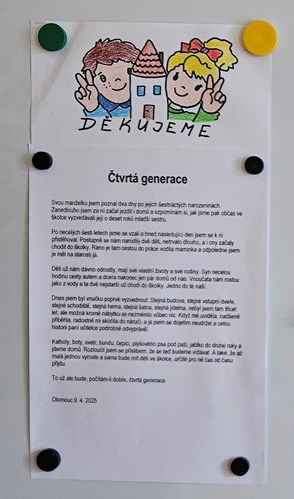 DĚKUJEME
Čtvrtá generace
Svou manželku jsem poznal dva dny po jejich šestnáctých narozeninách.
Zanedlouho jsem za ní začal jezdit i domů a vzpomínám si, jak jsme pak občas ve
školce vyzvedávali její o deset roků mladší sestru.
Po necelých šesti letech jsme se vzali a hned následující den jsem se k ní
přistěhoval. Postupně se nám narodily dvě děti, netrvalo dlouho, a i ony začaly
chodit do školky. Ráno je tam cestou do práce vodila maminka a odpoledne jsem
je měl na starosti já.
Děti už nám dávno odrostly, mají své vlastní životy a své rodiny. Syn necelou
hodinu cesty autem a dcera nakonec jen pár domů od nás. Vnoučata nám rostou
jako z vody a ta dvě nejstarší už chodí do školky. Jedno do té naší.
Dnes jsem byl vnučku poprvé vyzvednout. Stejná budova, stejné vstupní dveře,
stejné schodiště, stejná herna, stejná šatna, stejná jídelna, nebyl jsem tam třicet
let, ale možná kromě nábytku se nezměnilo vůbec nic. Když mě uviděla, nadšeně
přiběhla, radostně mi skočila do náručí, a já jsem se dojetím neudržel a celou
historii paní učitelce podrobně odvyprávěl.
Kalhoty, boty, svetr, bundu, čepici, plyšového psa pod paží, jablko do druhé ruky a
jdeme domů. Rozloučil jsem se příslibem, že se teď budeme vídávat. A také, že až
malá jednou vyroste a sama bude mít děti ve školce, určitě pro ně čas od času
přijdu.
To už ale bude, počítám-li dobře, čtvrtá generace.
Olomouc 9. 4. 2025